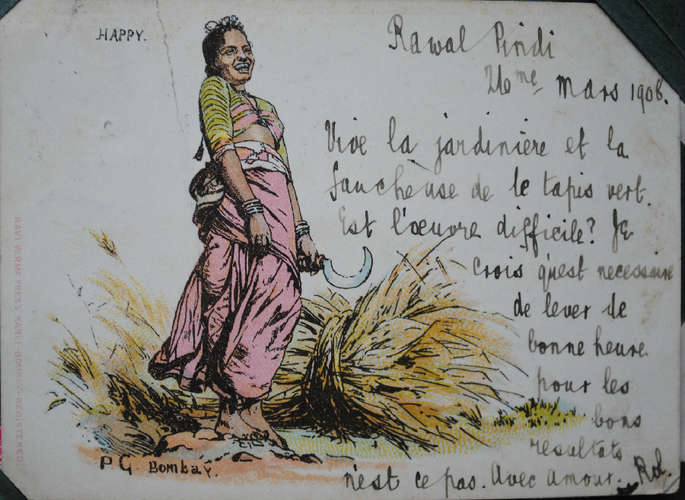 HAPPY.
Rawal Pindi
26me Mars 1906.
Vive la jardinière et la
faucheuse de le tapis vert.
Est l'œuvre difficile? Je
crois qu'est necessaire
de lever de
bonne heure
pour les
bons
resultats
n'est ce pas. Avec amour. Rol.
P G Bombay.
RAVI VARMA PRESS, KARLI-BOMBAY-REGISTERED